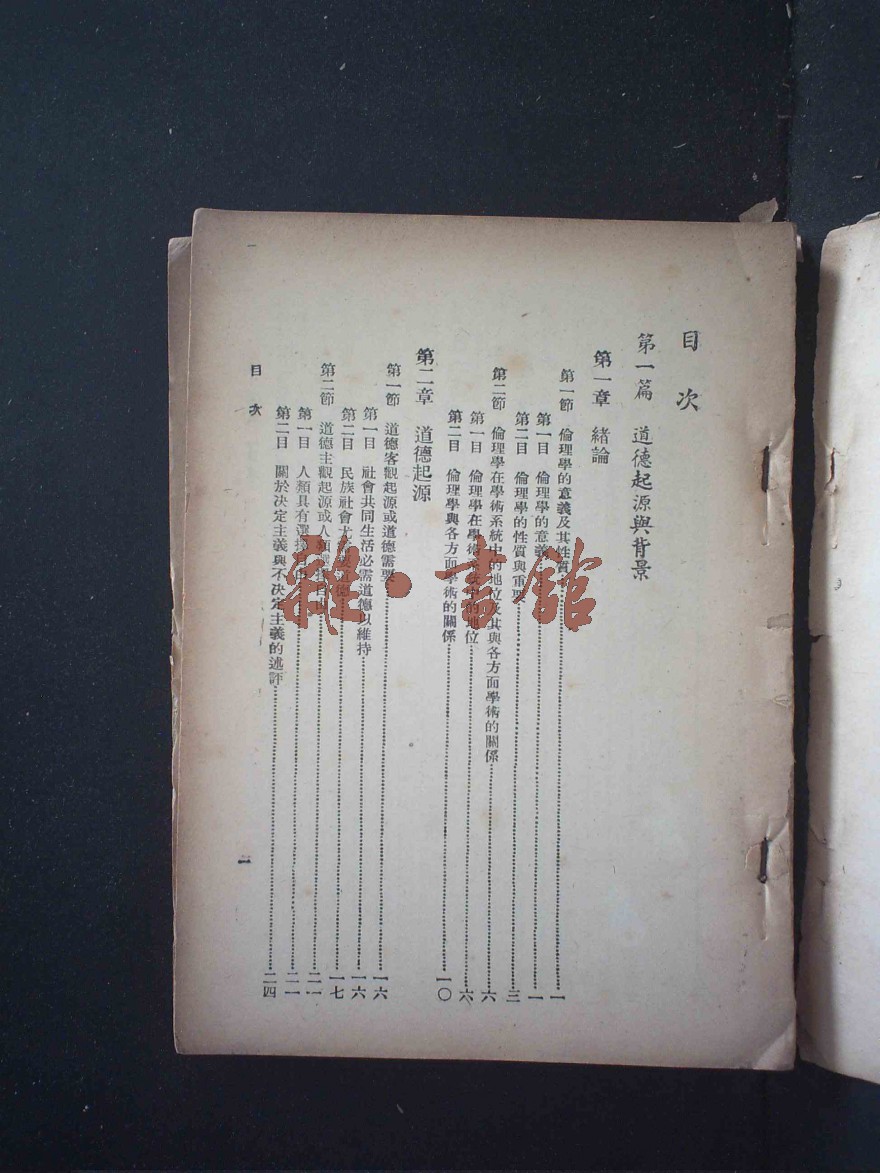 目次
第一篇 道德起源與背景
第一章 緒論
第一節 倫理學的意義及其性質……一
第一目 倫理學的意義……一
第二目 倫理學的性質與重要……三
第二節 倫理學在學術系統中的地位及其與各方面學術的關係……六
第一目 倫理學在學術系統中的地位……六
第二目 倫理學與各方面學術的關係……一〇
第二章 道德起源
第一節 道德客觀起源或道德需要……一六
第一目 社會共同生活必需道德以維持……一六
第二目 民族社會尤 要道德……一七
第二節 道德主觀起源或人類選擇自由……二一
第一目 人類具有選擇自由……二一
第二目 關於決定主義與不決定主義的述評……二四
目次
一
雜·書館